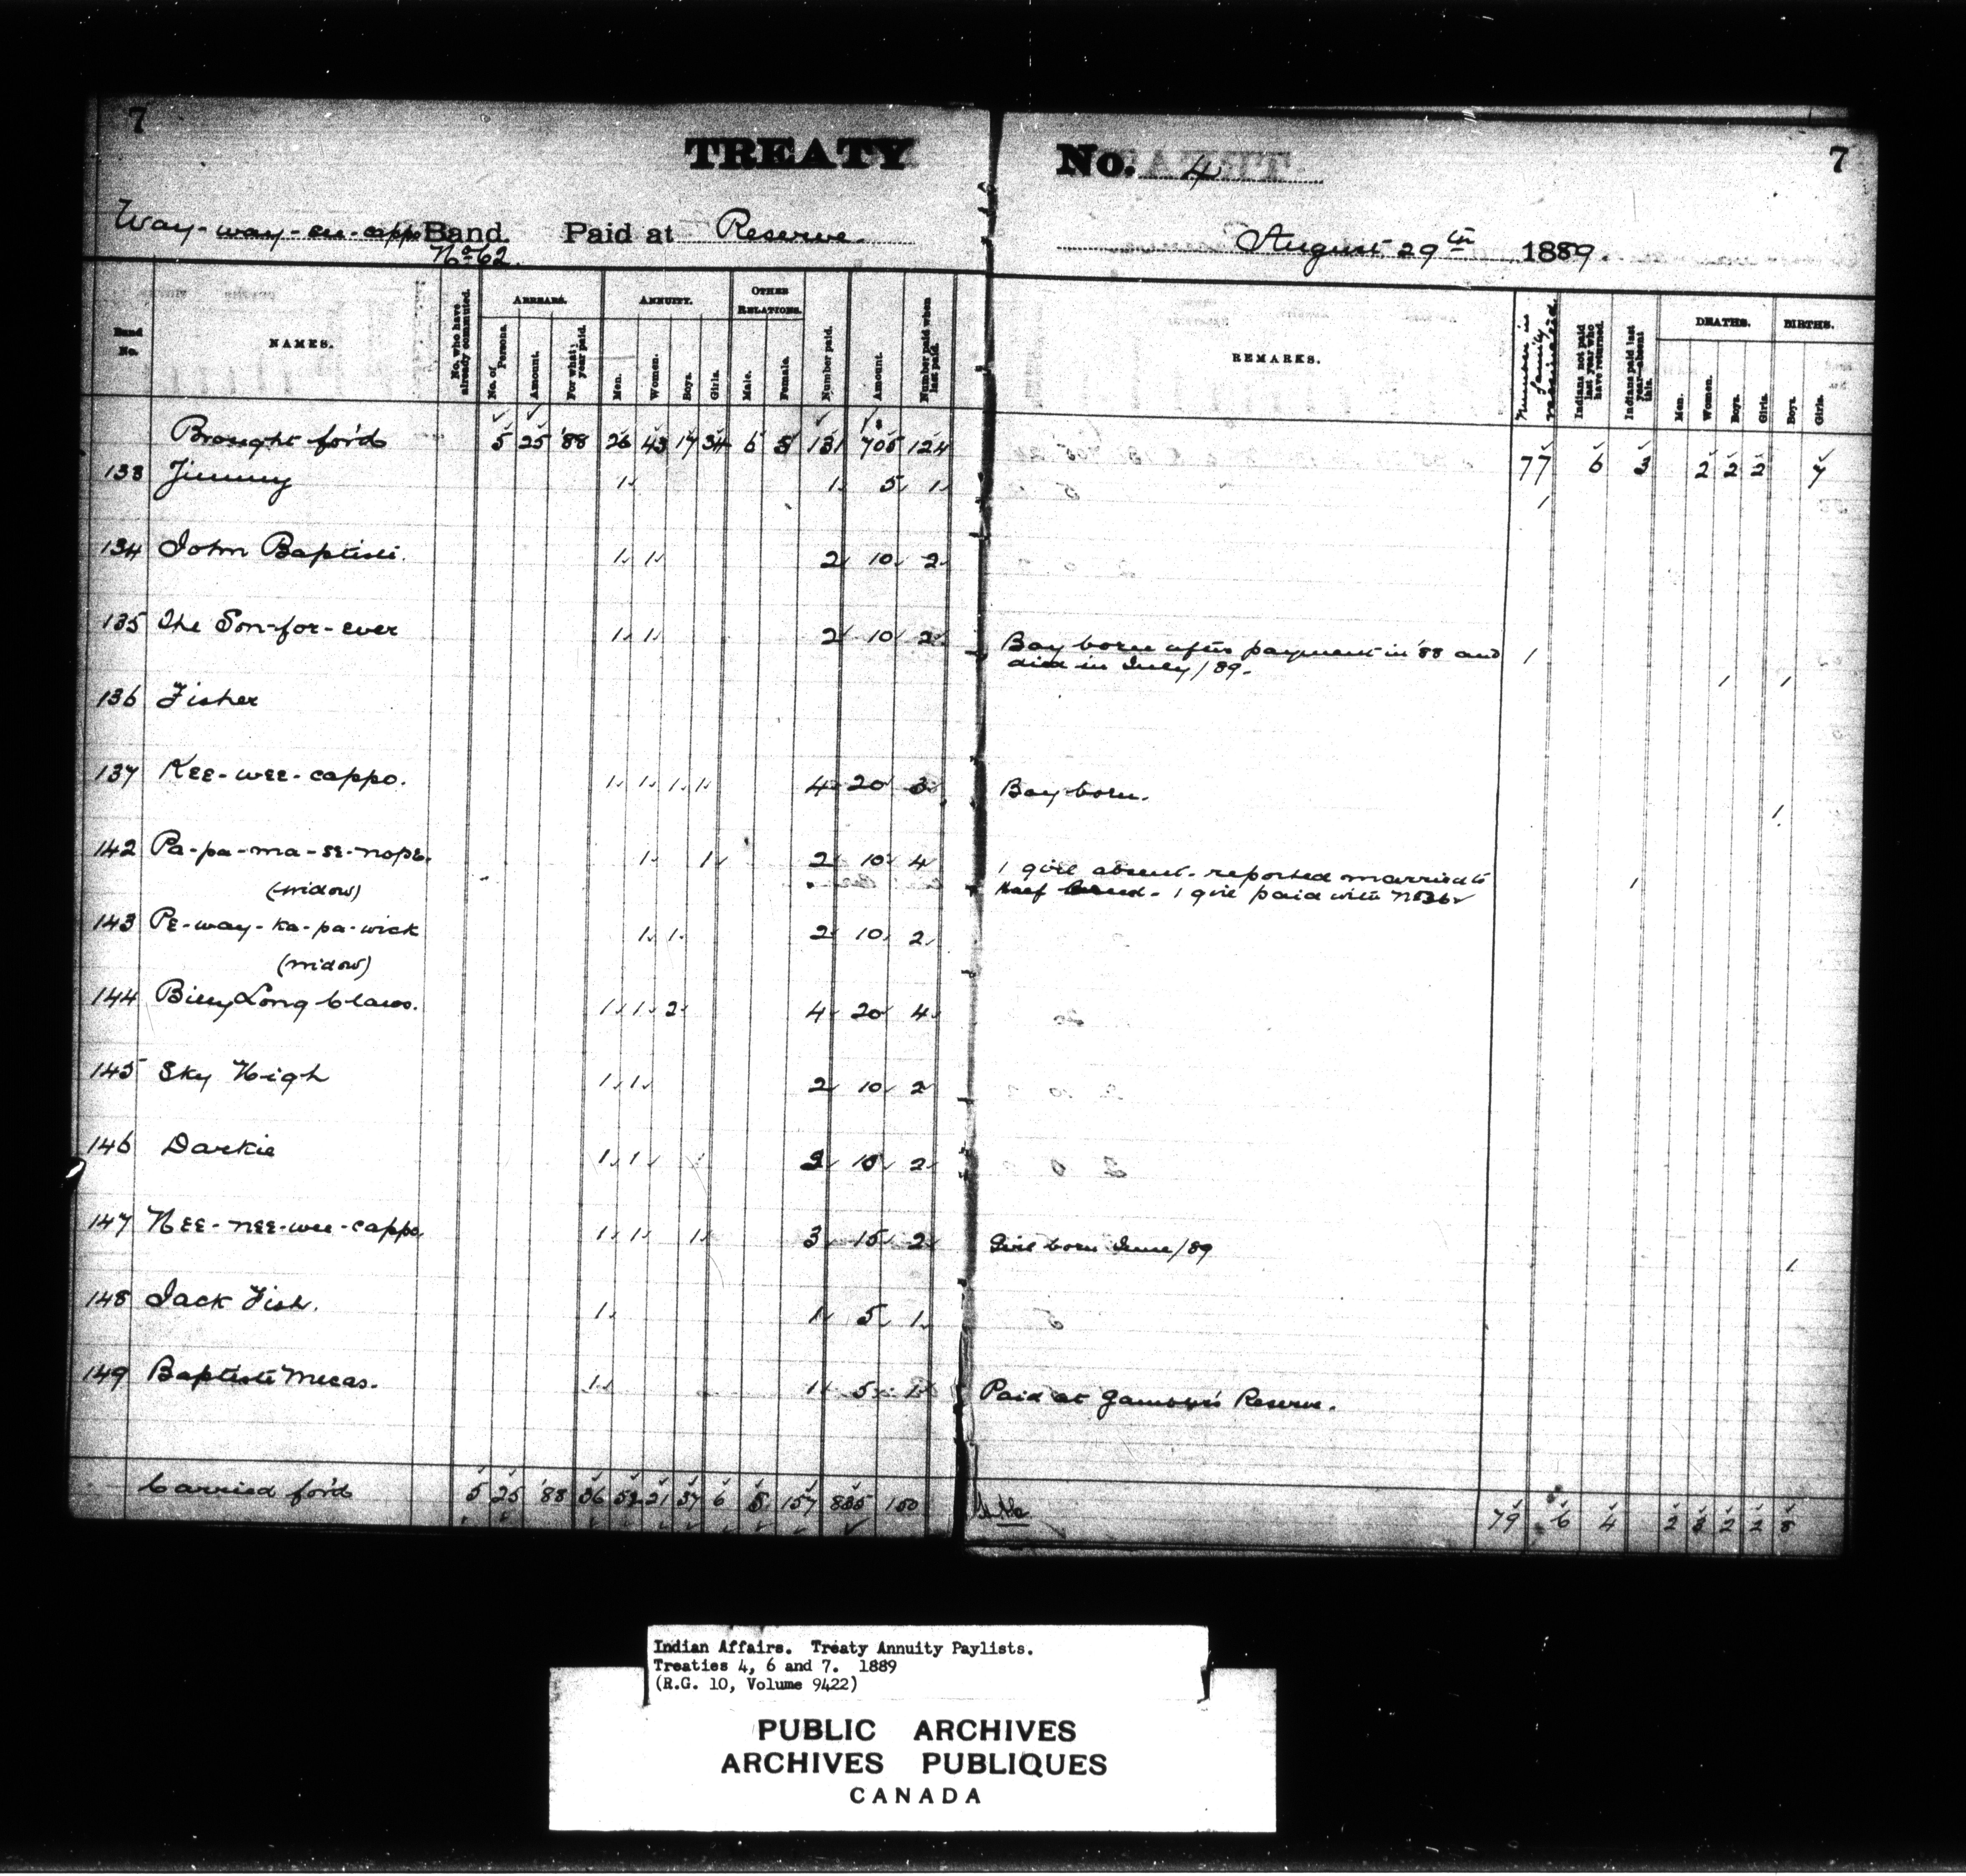 7
TREATY No. 4
7
Way-way-see-cappo Band. Paid at Reserve. August 29th 1889.
No 62.
Band No. NAMES. No. who have already commuted. ARREARS. No. of Persons. Amount. For what year paid. ANNUITY. Men. Women. Boys. Girls. OTHER RELATIONS. Male. Female. Number paid. Amount. Number paid when last paid. REMARKS. Number in family Indians not paid last year who have returned. Indians paid last year—absent this. DEATHS. Men. Women. Boys. Girls. BIRTHS. Boys. Girls.
Brought for'd 5 25 '88 26 43 17 34 6 5 131 705 124 77 6 3 2 2 2
133 Jimmy 1 1 5 1 1
134 John Baptiste. 1 1 2 10 2
135 The Son-for-ever 1 1 2 10 2 Boy born after payment in '88 and died in July/89. 1 1 1
136 Fisher
137 Kee-wee-cappo. 1 1 1 1 4 20 3 Boy born. 1
142 Pa-pa-ma-se-nope. 1 1 2 10 4 1 girl absent-reported married to
(widow) Half breed - 1 girl paid with No 36 1
143 Pe-way-ka-pa-wick 1 1 2 10 2
(widow)
144 Billy Long Claws. 1 1 2 4 20 4
145 Sky High 1 1 2 10 2
146 Darkie 1 1 2 10 2
147 Nee-nee-wee-cappo. 1 1 1 3 15 2 Girl born June/89 1
148 Jack Fish. 1 1 5 1
149 Baptiste Mecas. 1 1 5 1 Paid at Gambler's Reserve.
Carried for'd 5 25 '88 36 52 21 37 6 5 157 835 150 79 6 4 2 3 2 2 8
Indian Affairs. Treaty Annuity Paylists.
Treaties 4, 6 and 7. 1889
(R.G. 10, Volume 9422)
PUBLIC ARCHIVES
ARCHIVES PUBLIQUES
CANADA